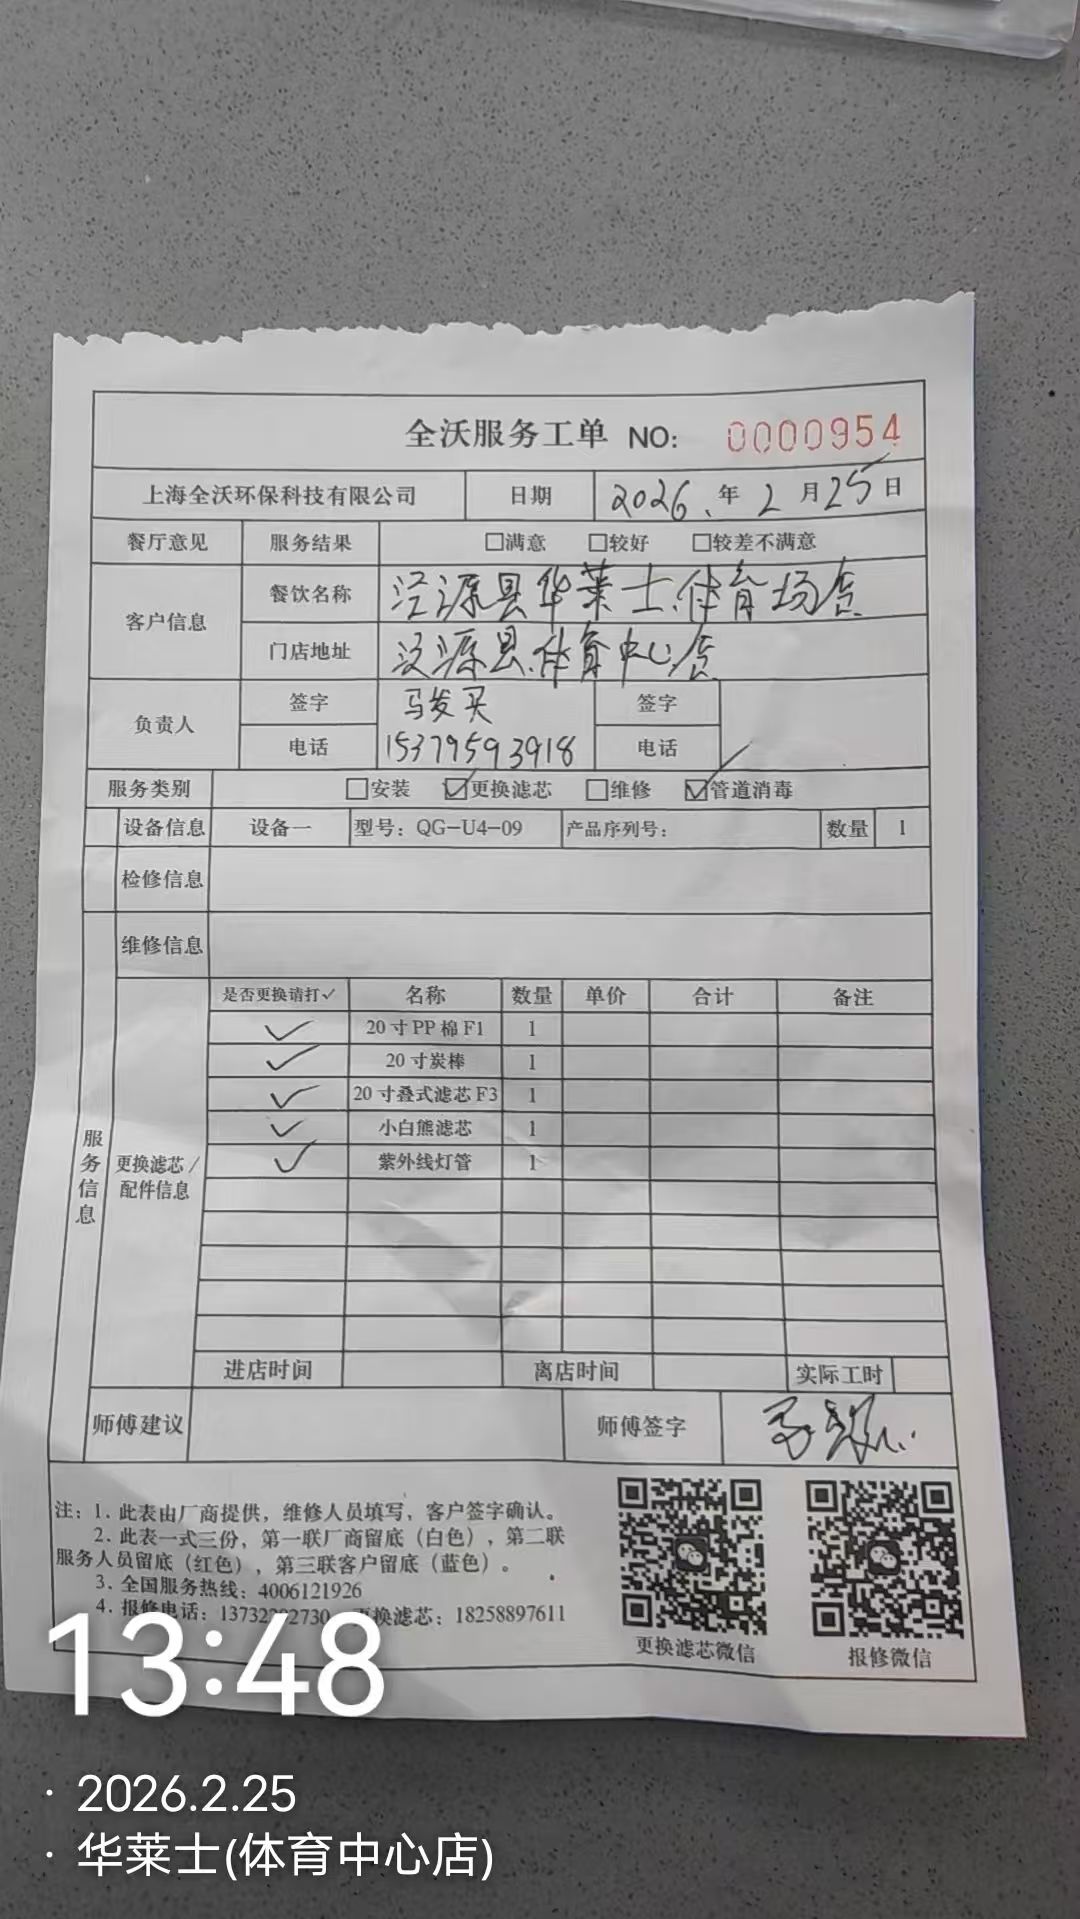 全沃服务工单 NO: 0000954
上海全沃环保科技有限公司 日期 2026.年2月25日
餐厅意见 服务结果 □满意 □较好 □较差不满意
客户信息 餐饮名称 泾源县华莱士体育场店
门店地址 泾源县体育中心店
负责人 签字 马发买 签字
电话 15379593918 电话
服务类别 □安装 ☑更换滤芯 □维修 ☑管道消毒
设备信息 设备一 型号：QG-U4-09 产品序列号： 数量 1
检修信息
维修信息
服务信息
更换滤芯/配件信息
是否更换请打✓ 名称 数量 单价 合计 备注
✓ 20寸PP棉F1 1
✓ 20寸炭棒 1
✓ 20寸叠式滤芯F3 1
✓ 小白熊滤芯 1
✓ 紫外线灯管 1
进店时间 离店时间 实际工时
师傅建议 师傅签字
注：1. 此表由厂商提供，维修人员填写，客户签字确认。
2. 此表一式三份，第一联厂商留底（白色），第二联
服务人员留底（红色），第三联客户留底（蓝色）。
3. 全国服务热线：4006121926
4. 报修电话： 更换滤芯：18258897611
更换滤芯微信 报修微信
13:48
· 2026.2.25
· 华莱士(体育中心店)